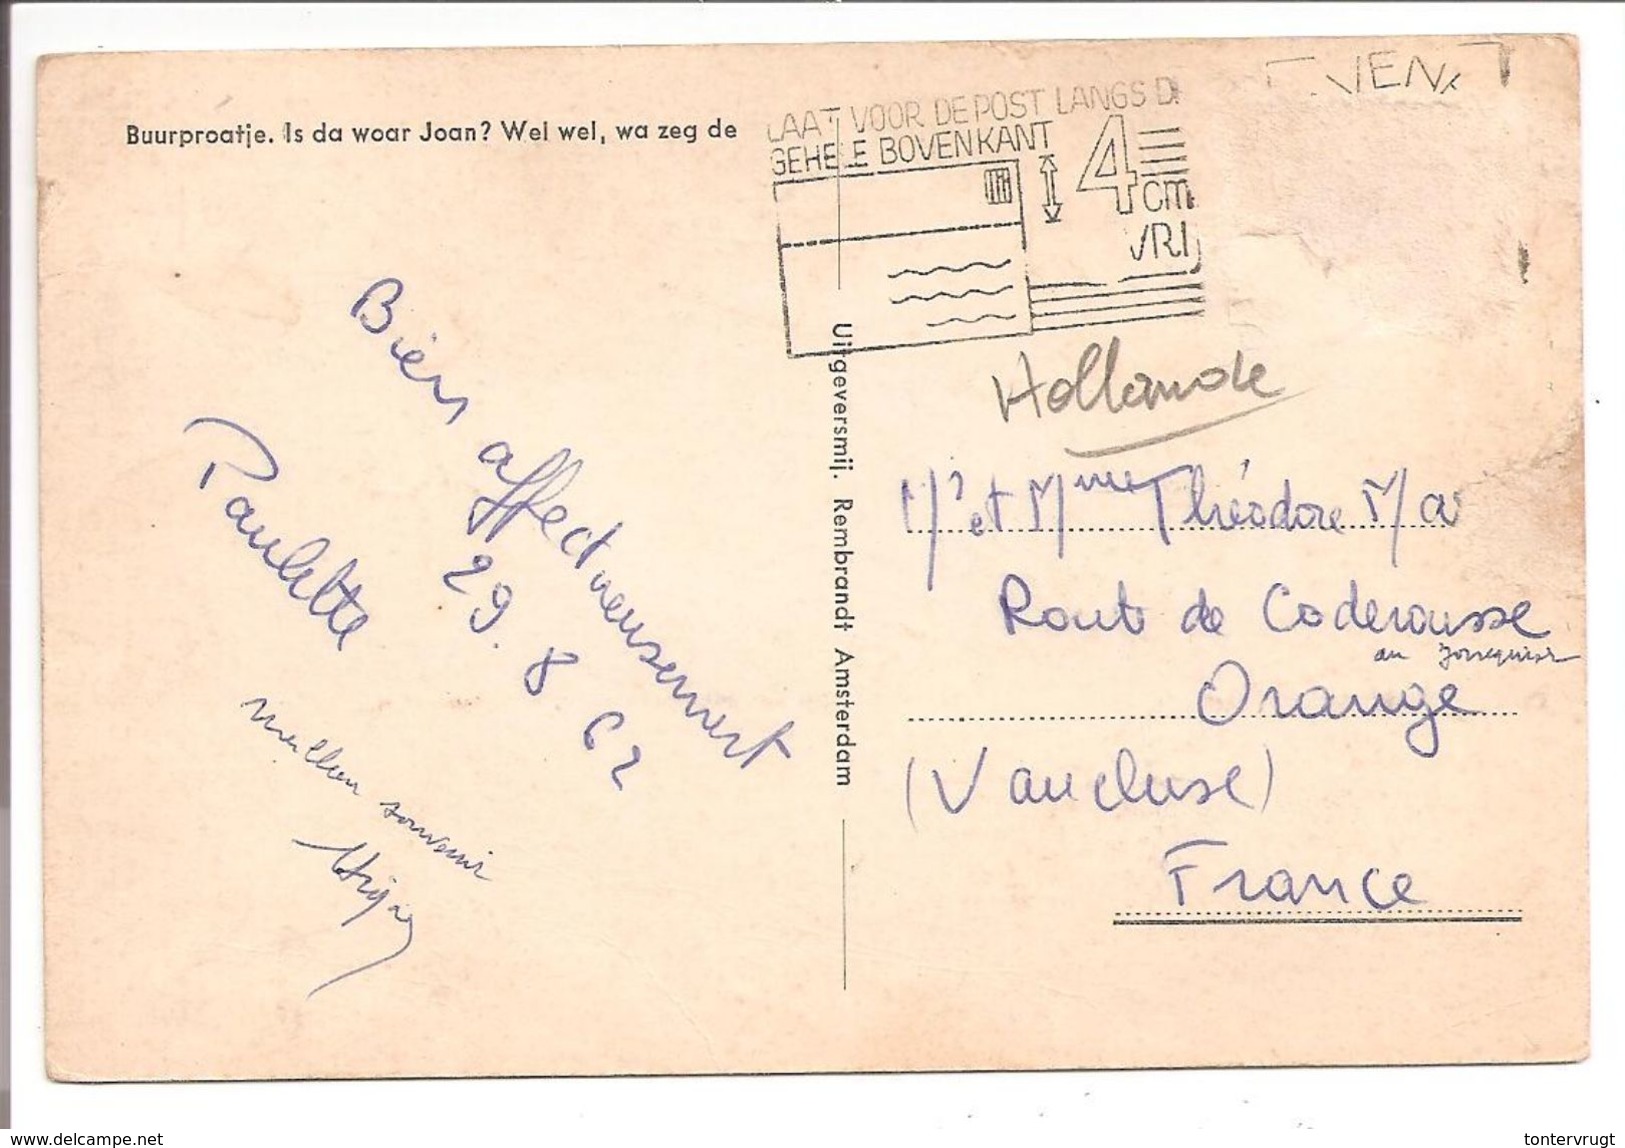 Buurproatje. Is da woar Joan? Wel wel, wa zeg de
LAAT VOOR DE POST LANGS D
GEHELE BOVENKANT
4
cm
VRIJ
Uitgeversmij. Rembrandt Amsterdam
Bien affectueusement
29.8 62
Paulette
meilleur souvenir
Hollande
Mr et Mme Théodore Ma
Route de Coderousse
au
Orange
(Vaucluse)
France
www.delcampe.net
tontervrugt